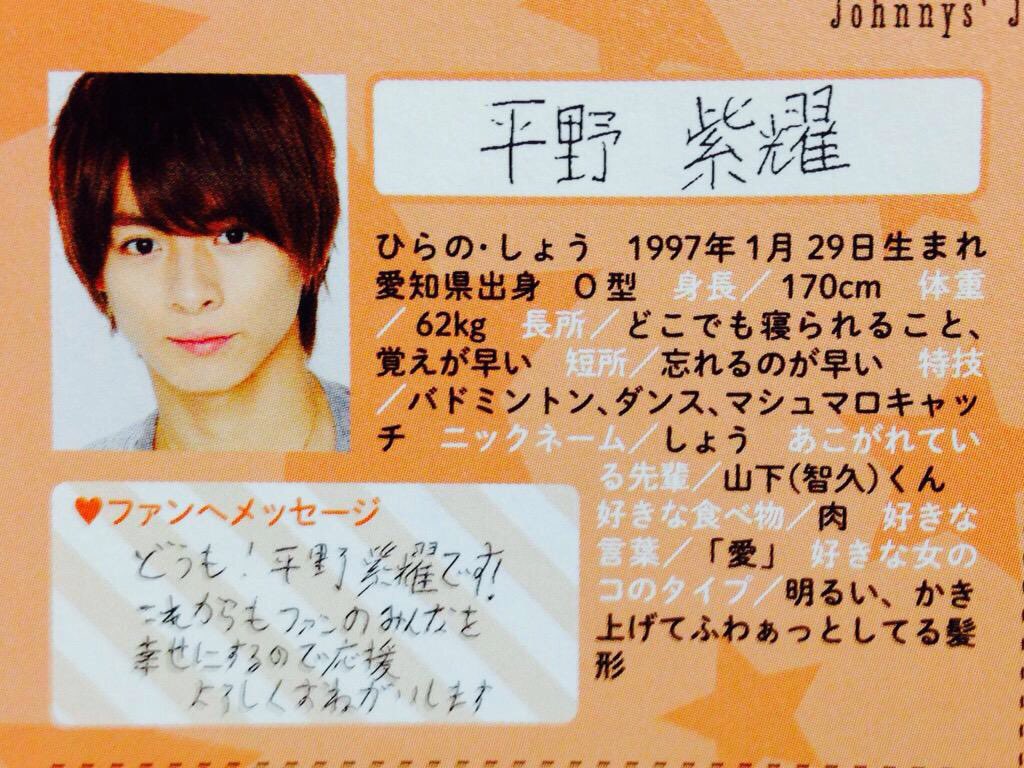 Johnnys' J
平野 紫耀
ひらの・しょう 1997年1月29日生まれ
愛知県出身 O型 身長／170cm 体重
／62kg 長所／どこでも寝られること、
覚えが早い 短所／忘れるのが早い 特技
／バドミントン、ダンス、マシュマロキャッ
チ ニックネーム／しょう あこがれてい
る先輩／山下(智久)くん
好きな食べ物／肉 好きな
言葉／「愛」 好きな女の
コのタイプ／明るい、かき
上げてふわぁっとしてる髪
形
♥ファンへメッセージ
どうも！平野紫耀です！
これからもファンのみんなを
幸せにするので応援
よろしくおねがいします